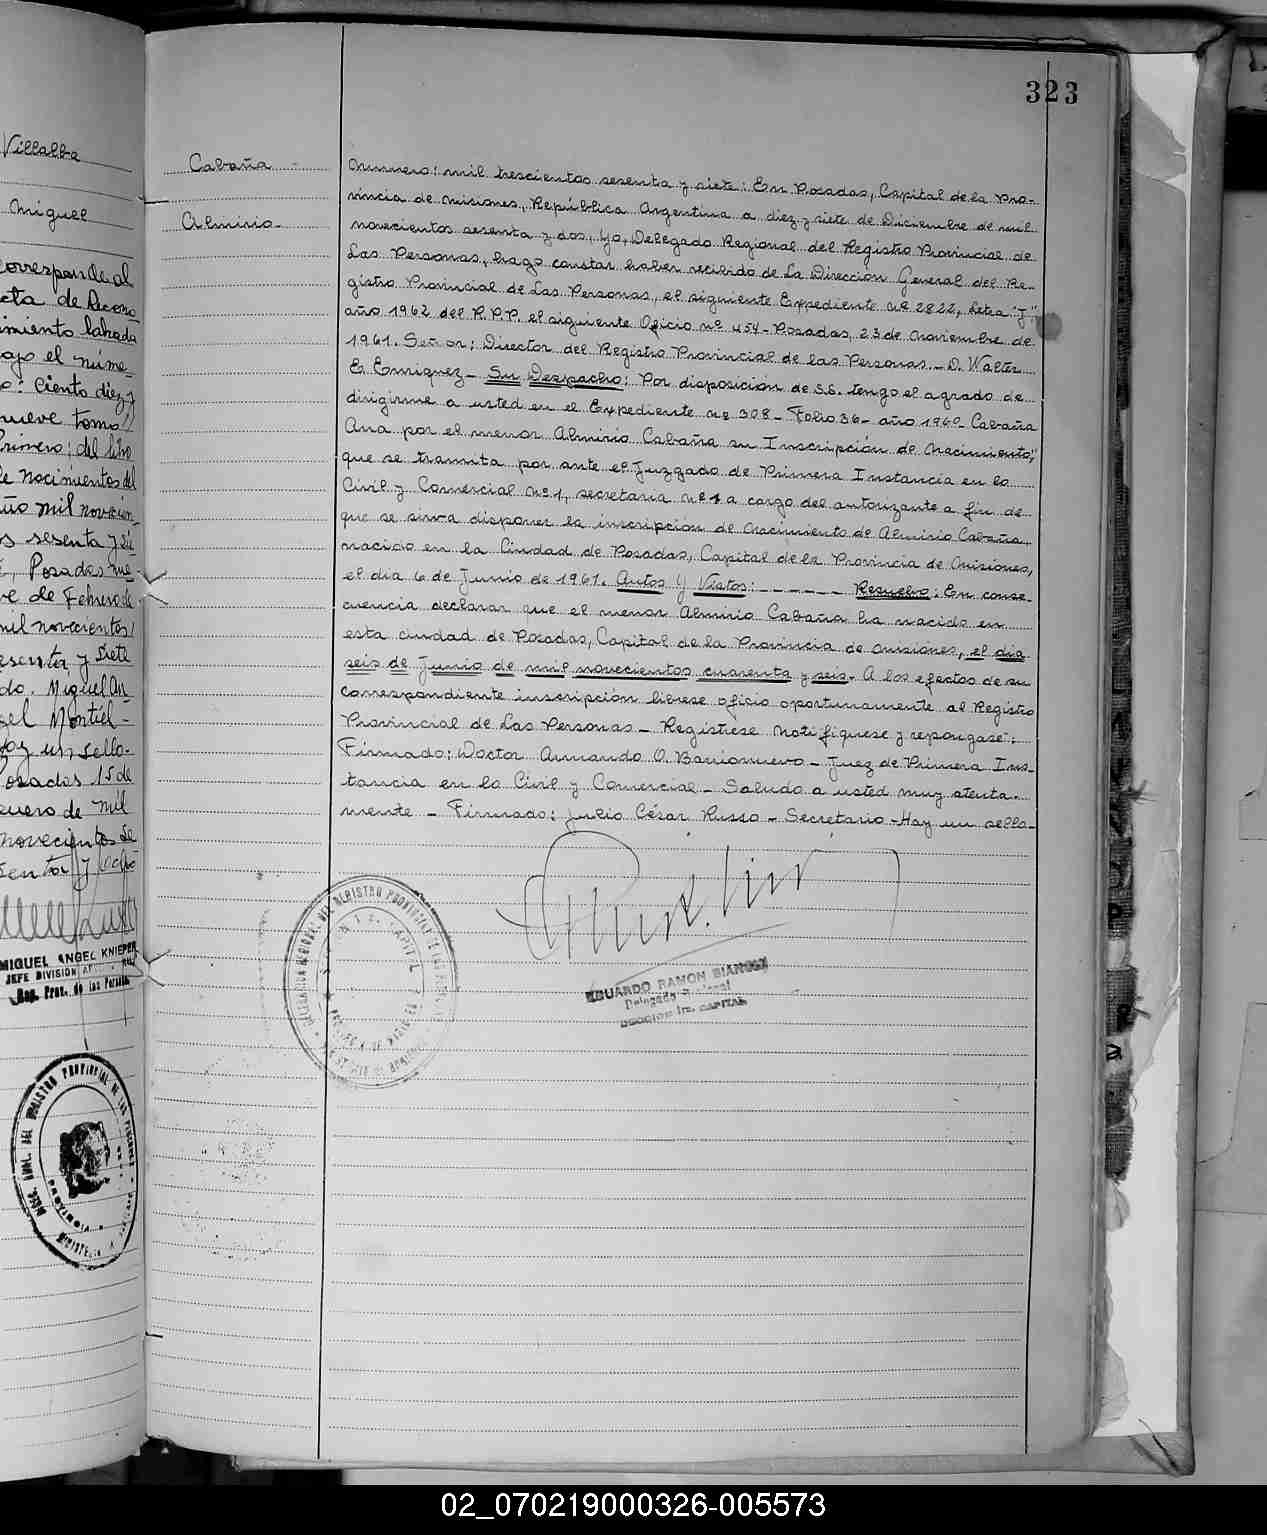 323
Villalba
Miguel
corresponde al
acta de Recono
cimiento labrada
bajo el núme-
ro: Ciento diez y
nueve tomo
Primero; del libro
de nacimientos del
año mil novecien-
tos sesenta y
Posadas nue-
ve de Febrero de
mil novecientos
sesenta y siete
do. Miguel An
gel Montiel -
Hay un sello.
Posadas 15 de
Enero de mil
novecientos se
senta y ocho
MIGUEL ANGEL KNIEPER
JEFE DIVISION
Reg. Prov. de las Personas
Cabaña -
Almirio -
Número: mil trescientos sesenta y siete: En Posadas, Capital de la Pro-
vincia de Misiones, República Argentina a diez y siete de Diciembre de mil
novecientos sesenta y dos, yo, Delegado Regional del Registro Provincial de
Las Personas, hago constar haber recibido de La Dirección General del Re-
gistro Provincial de Las Personas, el siguiente Expediente nº 2822, Letra "J",
año 1962 del R.P.P. el siguiente Oficio nº 454 - Posadas, 23 de Noviembre de
1961. Señor: Director del Registro Provincial de las Personas. - D. Walter
E. Enriquez - Su Despacho: Por disposición de S.S. tengo el agrado de
dirigirme a usted en el Expediente nº 308 - Folio 36 - año 1960 - Cabaña
Ana por el menor Almirio Cabaña su Inscripción de Nacimiento",
que se tramita por ante el Juzgado de Primera Instancia en lo
Civil y Comercial nº 1, secretaria nº 1 a cargo del autorizante a fin de
que se sirva disponer la inscripción de Nacimiento de Almirio Cabaña,
nacido en la Ciudad de Posadas, Capital de la Provincia de Misiones,
el dia 6 de Junio de 1961. Autos y Vistos: - - - - - - Resuelvo: En conse-
cuencia declarar que el menor Almirio Cabaña ha nacido en
esta ciudad de Posadas, Capital de la Provincia de Misiones, el dia
seis de Junio de mil novecientos cuarenta y seis. A los efectos de su
correspondiente inscripción librese oficio oportunamente al Registro
Provincial de Las Personas - Registrese Notifiquese y repongase".
Firmado: Doctor Armando O. Barrionuevo - Juez de Primera Ins-
tancia en lo Civil y Comercial - Saludo a usted muy atenta-
mente - Firmado: Julio César Russo - Secretario - Hay un sello -
EDUARDO RAMON BIANCHI
Delegado Regional
CAPITAL
02_070219000326-005573